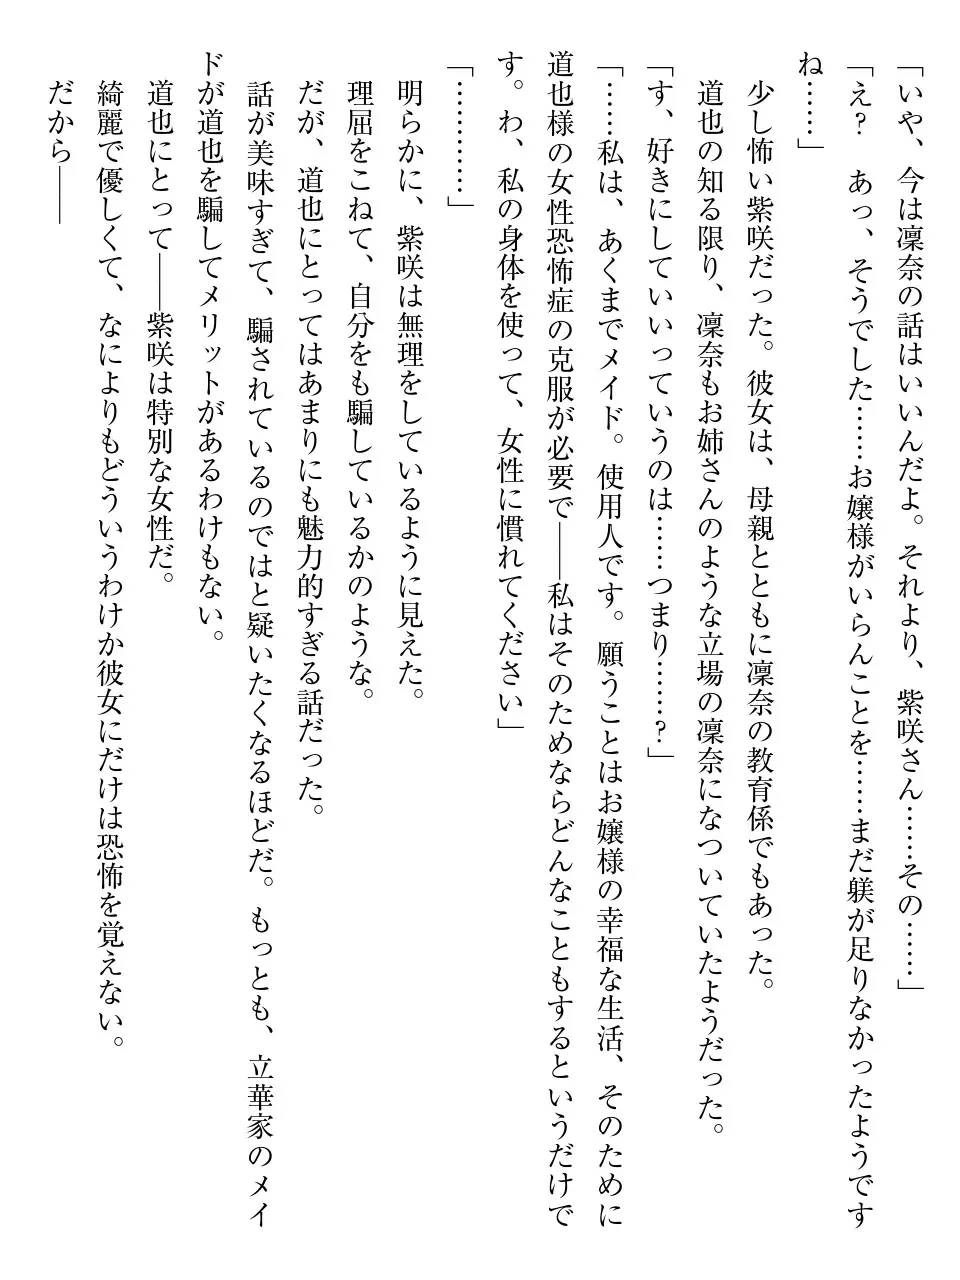 「いや、今は凜奈の話はいいんだよ。それより、紫咲さん……その……」
「え?　あっ、そうでした……お嬢様がいらんことを……まだ躾が足りなかったようです
ね……」
　少し怖い紫咲だった。彼女は、母親とともに凜奈の教育係でもあった。
　道也の知る限り、凜奈もお姉さんのような立場の凜奈になついていたようだった。
「す、好きにしていいっていうのは……つまり……?」
「……私は、あくまでメイド。使用人です。願うことはお嬢様の幸福な生活、そのために
道也様の女性恐怖症の克服が必要で――私はそのためならどんなこともするというだけで
す。わ、私の身体を使って、女性に慣れてください」
「…………」
　明らかに、紫咲は無理をしているように見えた。
　理屈をこねて、自分をも騙しているかのような。
　だが、道也にとってはあまりにも魅力的すぎる話だった。
　話が美味すぎて、騙されているのではと疑いたくなるほどだ。もっとも、立華家のメイ
ドが道也を騙してメリットがあるわけもない。
　道也にとって――紫咲は特別な女性だ。
　綺麗で優しくて、なによりもどういうわけか彼女にだけは恐怖を覚えない。
　だから――